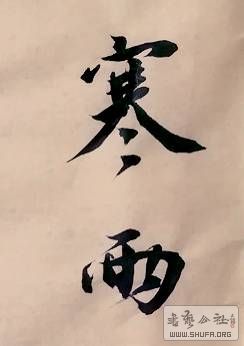 寒雨
书艺公社
WWW.SHUFA.ORG